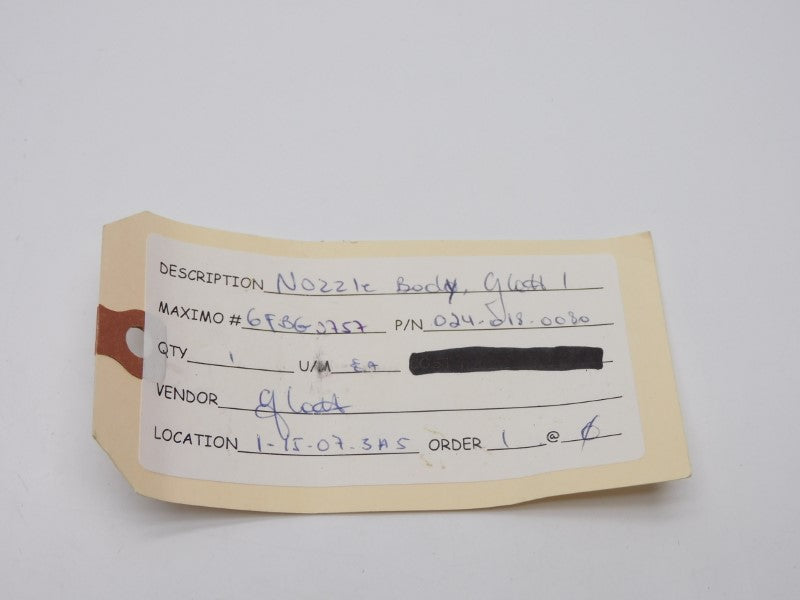 DESCRIPTION Nozzle Body, Glatt 1
MAXIMO # 6FBG2757 P/N 024-018-0080
QTY 1 U/M EA
VENDOR Glatt
LOCATION 1-15-07-3A5 ORDER 1 @ 0